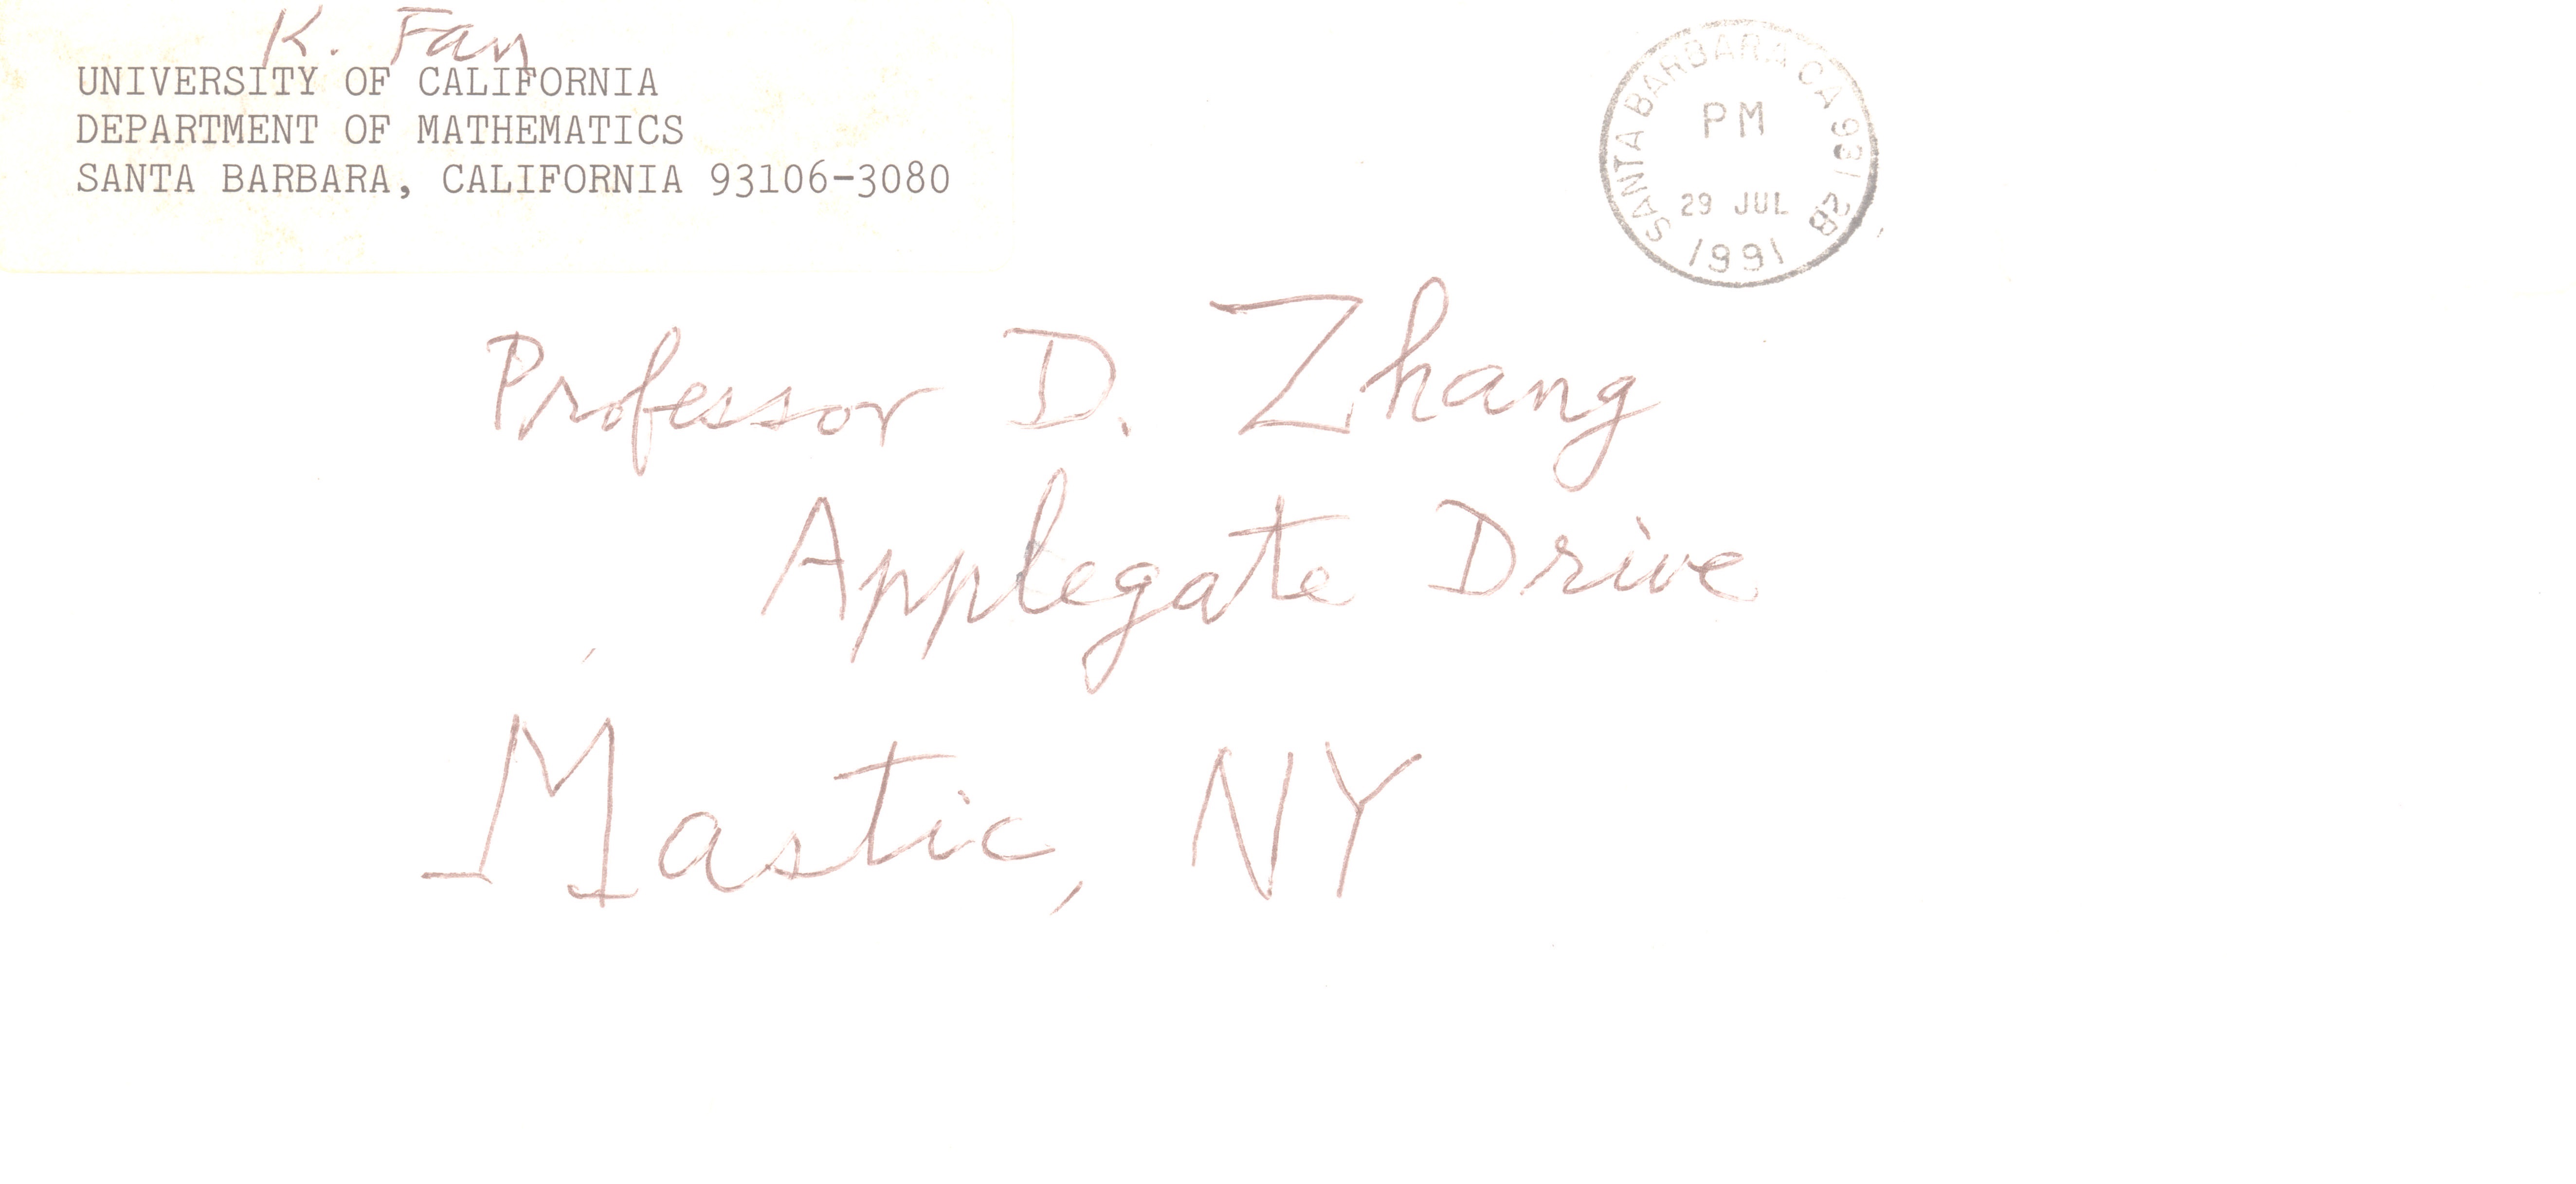 K. Fan
UNIVERSITY OF CALIFORNIA
DEPARTMENT OF MATHEMATICS
SANTA BARBARA, CALIFORNIA 93106-3080
SANTA BARBARA CA 931 2B
PM
29 JUL
1991
Professor D. Zhang
Applegate Drive
Mastic, NY